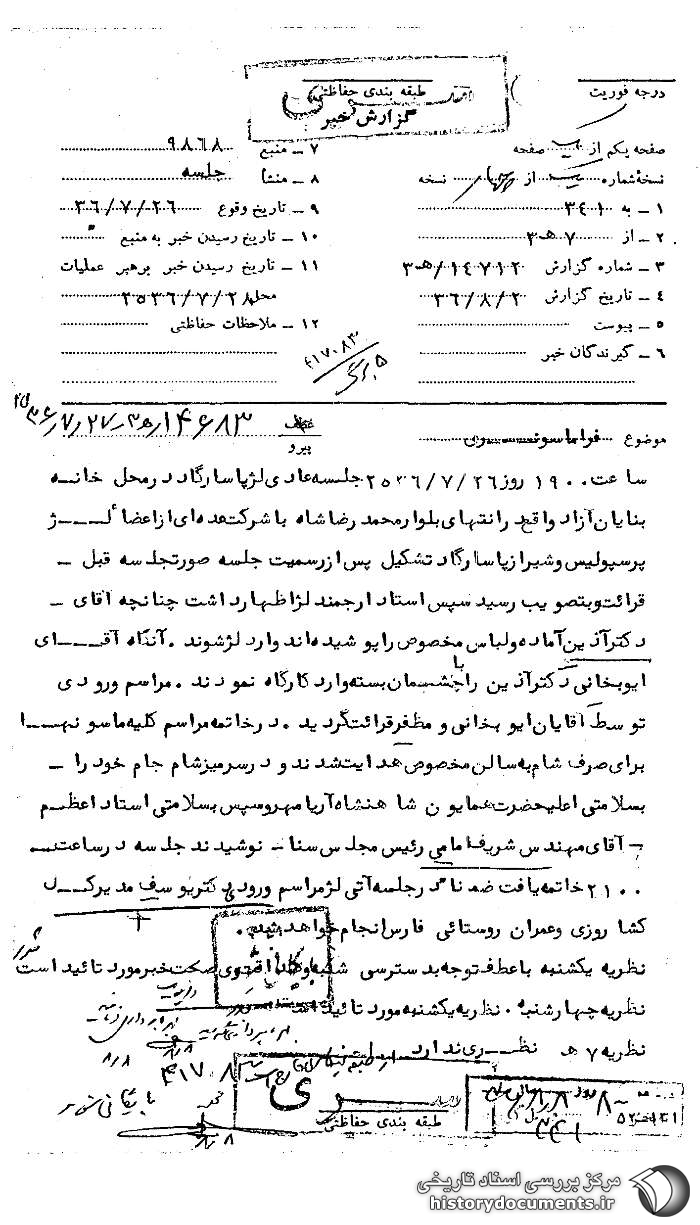 طبقه بندی حفاظتی
گزارش خبر
درجه فوریت
صفحه یکم از یک صفحه
نسخهٔ شماره یک از چهار نسخه
۱ ــ به ۳۴۱
۲ ــ از ۷ هـ ۳
۳ ــ شماره گزارش ۱۴۷۱۲/هـ۳
۴ ــ تاریخ گزارش ۳۶/۸/۲
۵ ــ پیوست
۶ ــ گیرندگان خبر
۷ ــ منبع ۹۸۶۸
۸ ــ منشأ جلسه
۹ ــ تاریخ وقوع ۳۶/۷/۲۶
۱۰ ــ تاریخ رسیدن خبر به منبع
۱۱ ــ تاریخ رسیدن خبر برهبر عملیات
محل ۲۵۳۶/۷/۲۸
۱۲ ــ ملاحظات حفاظتی
۴۱۷۰۸۳
موضوع فراماسونــری
پیرو ۱۴۶۸۳
ساعت ۱۹۰۰ روز ۲۵۳۶/۷/۲۶ جلسه عادی لژ پاسارگاد در محل خانه
بنایان آزاد واقع در انتهای بلوار محمد رضا شاه با شرکت عده ای از اعضا ٔ لــژ
پرسپولیس و شیراز پاسارگاد تشکیل پس از رسمیت جلسه صورتجلسه قبل ــ
قرائت و بتصویب رسید سپس استاد ارجمند لژ اظهار داشت چنانچه آقای ــ
دکتر آذین آماده و لباس مخصوص را پوشیده اند وارد لژ شوند . آنگاه آقــای
ایوبخانی دکتر آذین را با چشمان بسته وارد کارگاه نمودند . مراسم ورودی
توسط آقایان ایوبخانی و مظفر قرائت گردید . در خاتمه مراسم کلیه ماسونهــا
برای صرف شام به سالن مخصوص هدایت شدند و در سر میز شام جام خود را ــ
بسلامتی اعلیحضرت همایون شاهنشاه آریامهر و سپس بسلامتی استاد اعظــم
ــ آقای مهندس شریف امامی رئیس مجلس سنا ــ نوشیدند جلسه در ساعتــ
۲۱۰۰ خاتمه یافت ضمناً در جلسه آتی لژ مراسم ورودی دکتر یوسف مدیرکــل
کشاورزی و عمران روستائی فارس انجام خواهد شد .
نظریه یکشنبه با عطف توجه بدسترسی شنبه وقوع صحت خبر مورد تائید است
نظریه چهارشنبه . نظریه یکشنبه مورد تائید است
نظریه ۷ هـ نظــری ندارد
بایگانی
۴۱۷۰۸۳
بایگانی شود
ســری
طبقه بندی حفاظتی
مرکز بررسی اسناد تاریخی
historydocuments.ir